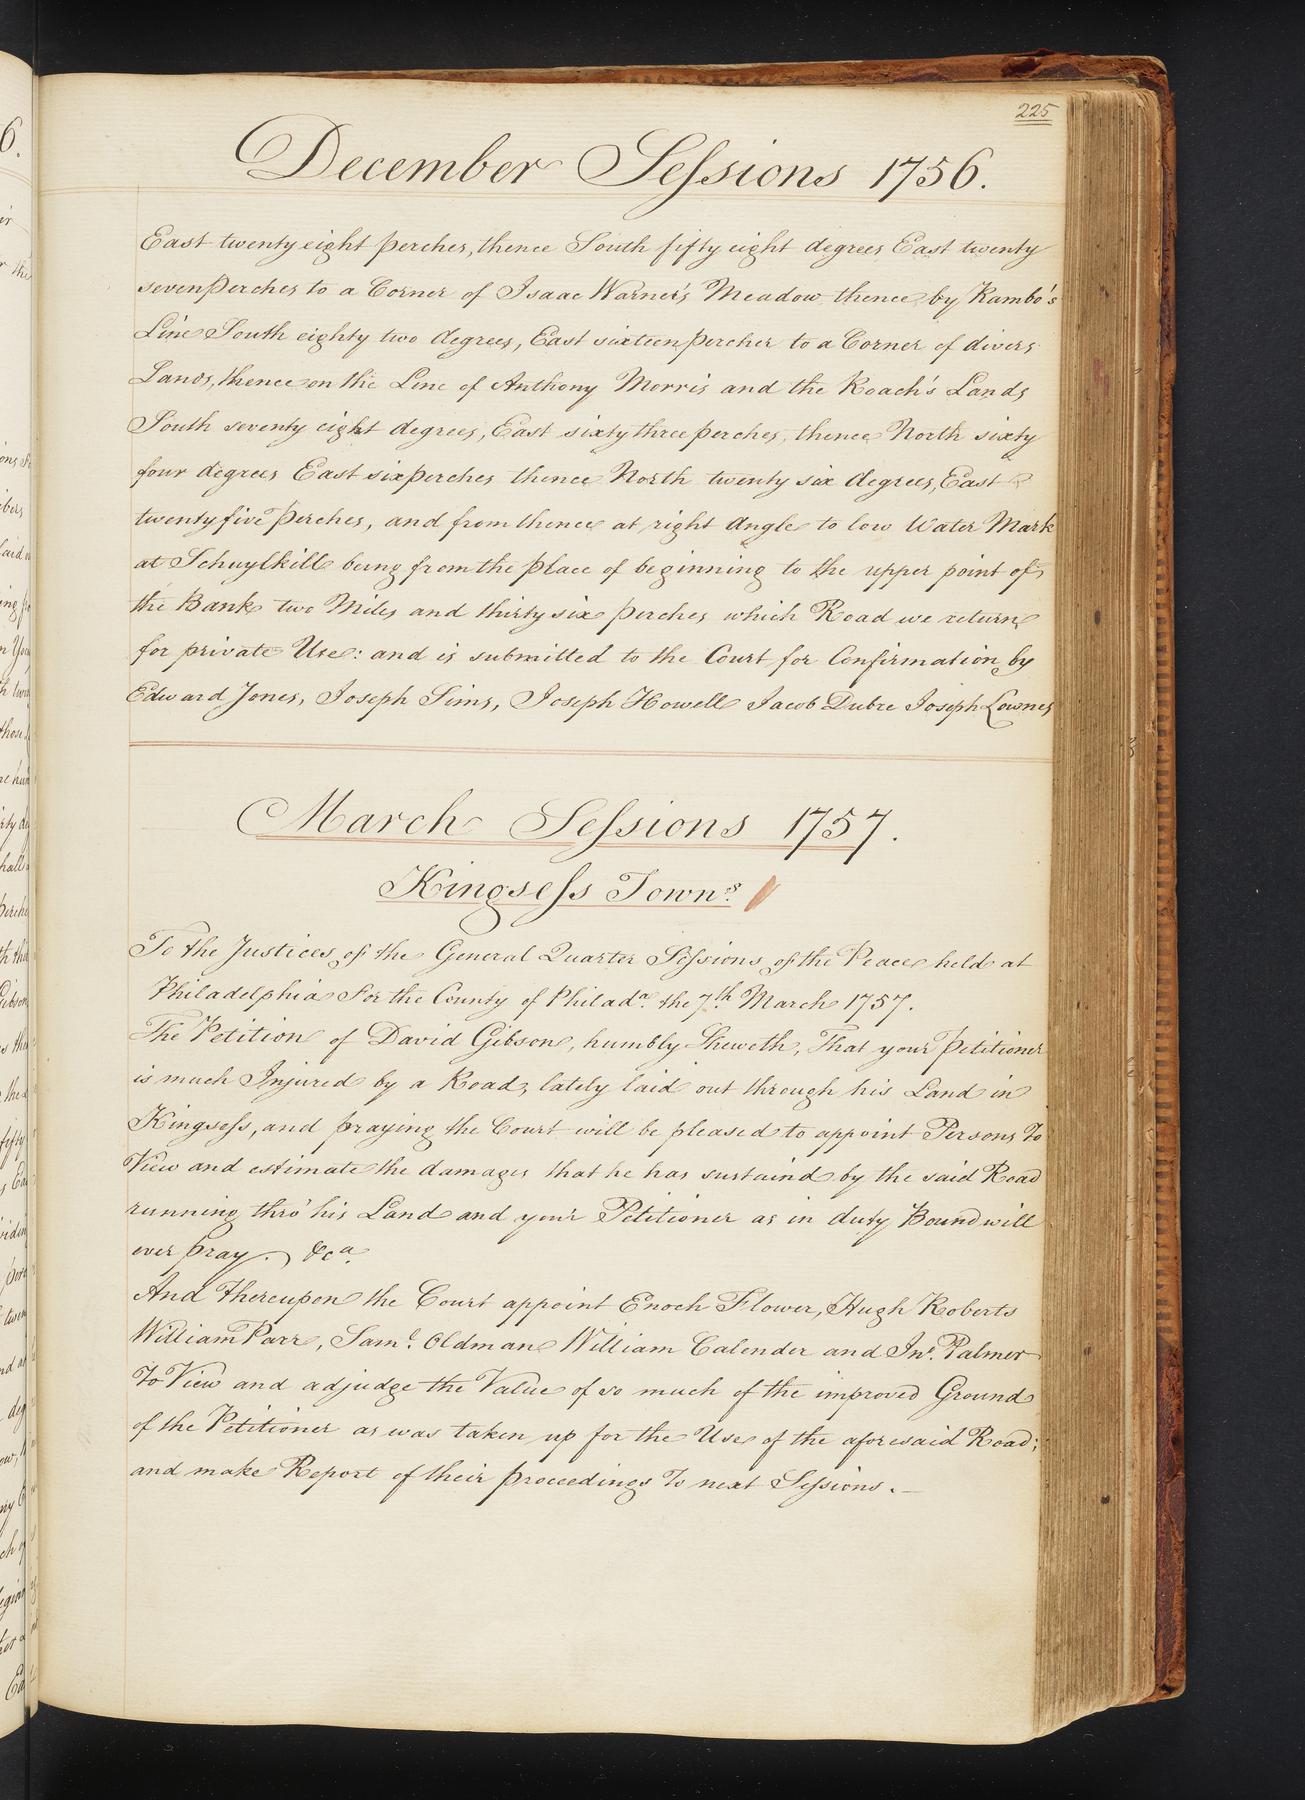 225
December Seſsions 1756.
East twenty eight perches, thence South fifty eight degrees East twenty
seven perches to a Corner of Isaac Warner's Meadow thence by Rambo's
Line South eighty two degrees, East sixteen perches to a Corner of divers
Lands, thence on the Line of Anthony Morris and the Roach's Lands
South seventy eight degrees, East sixty three perches, thence North sixty
four degrees East six perches thence North twenty six degrees, East
twenty five perches, and from thence at right Angle to low Water Mark
at Schuylkill being from the place of beginning to the upper point of
the Bank two Miles and thirty six perches which Road we return
for private Use: and is submitted to the Court for Confirmation by
Edward Jones, Joseph Sims, Joseph Howell Jacob Dubre Joseph Lownes
March Seſsions 1757.
Kingseſs Towns
To the Justices of the General Quarter Seſsions of the Peace held at
Philadelphia For the County of Philada. the 7th. March 1757.
The Petition of David Gibson, humbly Sheweth, That your Petitioner
is much Injured by a Road, lately laid out through his Land in
Kingseſs, and praying the Court will be pleased to appoint Persons To
View and estimate the damages that he has sustaind by the said Road
running thro' his Land and your Petitioner as in duty Bound will
ever pray. &ca.
And Thereupon the Court appoint Enoch Flower, Hugh Roberts
William Parr, Saml. Oldman William Calender and Jno. Palmer
To View and adjudge the Value of so much of the improved Ground
of the Petitioner as was taken up for the Use of the aforesaid Road;
and make Report of their proceedings To next Seſsions. —